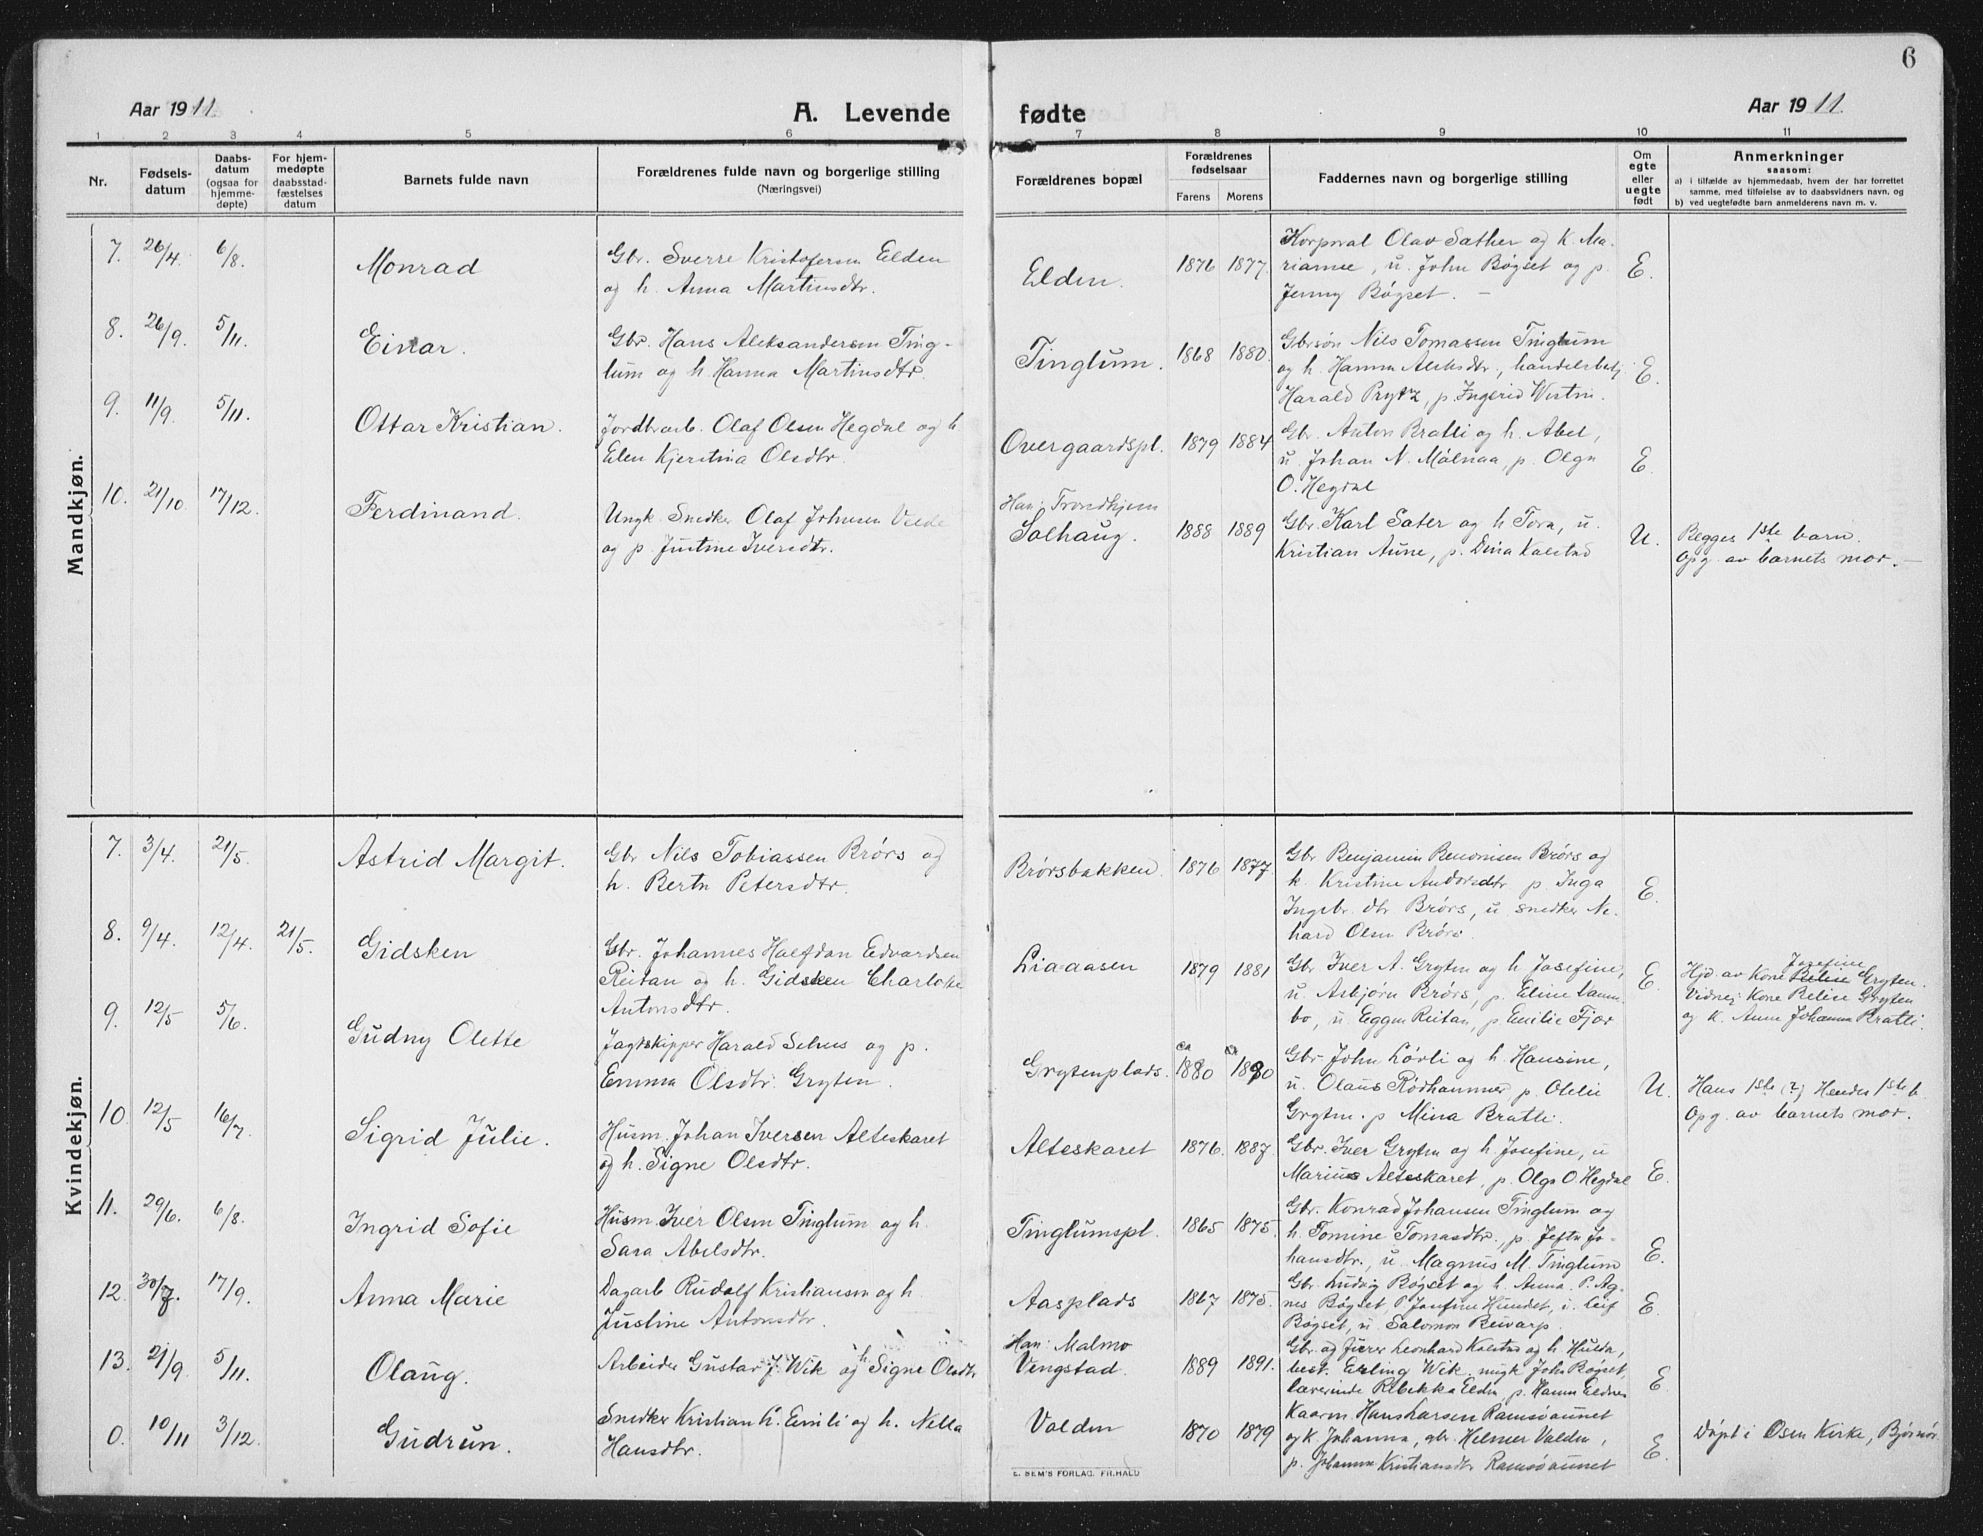 6
Aar 1911
A. Levende
fødte
Aar 1911
1 2 3 4 5 6 7 8 9 10 11
Nr.
Fødsels-
datum
Daabs-
datum
(ogsaa for
hjemme-
døpte)
For hjem-
medøpte
daabsstad-
fæstelses
datum
Barnets fulde navn
Forældrenes fulde navn og borgerlige stilling
(Næringsvei)
Forældrenes bopæl
Forældrenes
fødselsaar
Farens Morens
Faddernes navn og borgerlige stilling
Om
egte
eller
uegte
født
Anmerkninger
saasom:
a) i tilfælde av hjemmedaab, hvem der har forrettet
samme, med tilføielse av to daabsvidners navn, og
b) ved uegtefødte barn anmelderens navn m. v.
Mandkjøn.
7. 26/4. 6/8.
Monrad
Gbr. Sverre Kristofersen Elden
og h. Anna Martinsdtr.
Elden.
1876 1877.
Korporal Olav Sæther og k. Ma-
rianne, u. John Bøgset og p.
Jenny Bøgset. —
E.
8. 26/9. 5/11.
Einar.
Gbr. Hans Aleksandersen Ting-
lum og h. Hanna Martinsdtr.
Tinglum.
1868 1880.
Gbrsøn Nils Tomassen Tinglum
og h. Hanna Aleksdtr., handelsbetj.
Harald Prytz, p. Ingerid Westin.
E.
9. 11/9. 5/11.
Ottar Kristian.
Jordbrarb. Olaf Olsen Hegdal og h.
Elen Kjerstina Olsdtr
Overgaardspl.
1879 1884
Gbr. Anton Bratli og h. Abel,
u. Johan N. Målnaa, p. Olga
O. Hegdal
E.
10. 21/10. 17/12.
Ferdinand.
Ungk. Snedker Olaf Johnsen Velde
og p. Justine Iversdtr.
Han: Trondhjem
Solhaug.
1888 1889
Gbr. Karl Sæter og h Tora, u.
Kristian Aune, p. Dina Kalstad
U.
Begges 1ste barn.
Opg. av barnets mor. —
Kvindekjøn.
7. 3/4. 21/5.
Astrid Margit.
Gbr Nils Tobiassen Brørs og
h. Berta Petersdtr.
Brørsbakken.
1876 1877.
Gbr Benjamin Benonisen Brørs og
k. Kristine Andorsdtr p. Inga
Ingebr. dtr Brørs, u snedker Ne-
hard Olsen Brørs.
E.
8. 9/4. 12/4. 21/5.
Gidsken
Gbr. Johannes Halfdan Edvardsen
Reitan og h. Gidsken Charlotte
Antonsdtr.
Liaaasen
1879 1881
Gbr Iver A. Gryten og h Josefine,
u. Asbjørn Brørs, p. Eline Lamm-
bo, u. Eggen Reitan, p. Emilie Fjær
E.
Josefine
Hjd. av Kone Belise Gryten.
Vidner: Kone Belise Gryten
og k. Anne Johanna Bratli.
9. 12/5 5/6.
Gudny Olette
Jagtskipper Harald Selnes og p.
Emma Olsdtr. Gryten.
Grytenplads.
ca 1880 ca 1890
Gbr John Lørli og h. Hansine,
u. Olaus Rødhammer p. Otelie
Gryten. p Mina Bratli.
U.
Hans 1ste (?) Hendes 1ste b.
Opg. av barnets mor.
10 12/5 16/7.
Sigrid Julie.
Husm. Johan Iversen Alteskaret
og h. Signe Olsdtr.
Alteskaret
1876. 1887
Gbr. Iver Gryten og h Josefine, u
Marius Alteskaret, p. Olga O. Hegdal
E.
11. 29/6. 6/8.
Ingrid Sofie
Husm. Iver Olsen Tinglum og h.
Sara Abelsdtr.
Tinglumspl.
1865 1875.
Gbr. Konrad Johansen Tinglum og
h. Tomine Tomasdtr., p. Jefta Jo-
hansdtr., u. Magnus M. Tinglum
E.
12. 30/7. 17/9.
Anna Marie
Dagarb Rudolf Kristiansen og h.
Justine Antonsdtr.
Aasplads
1867 1875.
Gbr. Ludvig Bøgset og h. Anna. P. Ag-
nes Bøgset, P. Josefine Hundet, i. Leif
Bøgset, u Salomon Beivarp.
E.
13. 21/9. 5/11.
Olaug.
Arbeider Gustav J. Wik og h Signe Olsdtr
Han: Malmo
Vengstad.
1889 1891.
Gbr og fierer Leonhard Kalstad og h. Hulda,
best. Erling Wik, ungk John Bøgset,
lærerinde Rebekka Elden, p. Hanna Eldnes
E.
0. 10/11 3/12.
Gudrun.
Snedker Kristian L. Emili og h. Nella
Hansdtr.
Valden
1870 1879
Kaarm. Hans Larsen Ramsøaunet
og k. Johanna, gbr. Helmer Valden,
p. Johanna Kristiansdtr Ramsøaunet
E.
Døpt i Osen Kirke, Bjørnør.
E. SEM'S FORLAG. FR.HALD